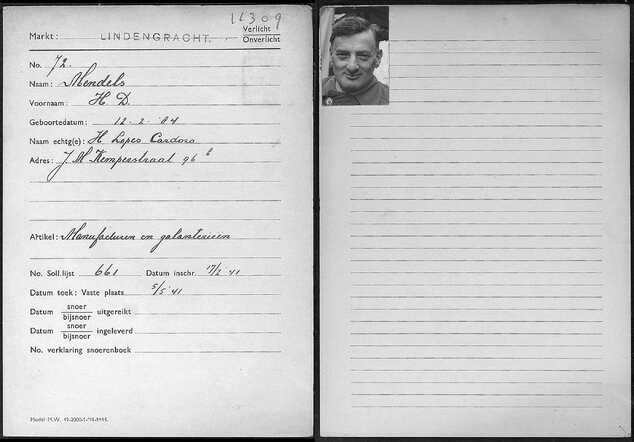 11309
Markt: LINDENGRACHT.
Verlicht
Onverlicht
No. 72.
Naam: Mendels
Voornaam: H. D.
Geboortedatum: 12-2-04
Naam echtg(e): H Lopes Cardozo
Adres: J. M Kemperstraat 96
Artikel: Manufacturen en galanterieën
No. Soll.lijst 661 Datum inschr. 17/2 '41
Datum toek: Vaste plaats 5/5 '41
Datum snoer
bijsnoer uitgereikt
Datum snoer
bijsnoer ingeleverd
No. verklaring snoerenboek
Model M.W.